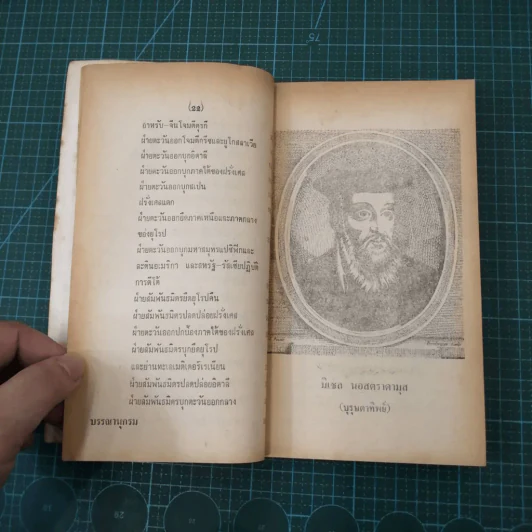 (22)
อาหรับ-จีนโจมตีตุรกี
ฝ่ายตะวันออกโจมตีกรีซและยูโกสลาเวีย
ฝ่ายตะวันออกบุกอิตาลี
ฝ่ายตะวันออกบุกภาคใต้ของฝรั่งเศส
ฝ่ายตะวันออกบุกสเปน
ฝรั่งเศสแตก
ฝ่ายตะวันออกยึดภาคเหนือและภาคกลาง
ของยุโรป
ฝ่ายตะวันออกบุกมหาสมุทรแปซิฟิกและ
ละตินอเมริกา และสหรัฐ-รัสเซียปฏิบัติ
การตีโต้
ฝ่ายสัมพันธมิตรยึดยุโรปคืน
ฝ่ายสัมพันธมิตรปลดปล่อยฝรั่งเศส
ฝ่ายตะวันออกปกป้องภาคใต้ของฝรั่งเศส
ฝ่ายสัมพันธมิตรบุกยึดยุโรป
และย่านทะเลเมดิเตอร์เรเนียน
ฝ่ายสัมพันธมิตรปลดปล่อยอิตาลี
ฝ่ายสัมพันธมิตรบุกตะวันออกกลาง
บรรณานุกรม
มิเชล นอสตราดามุส
(บุรุษตาทิพย์)
75